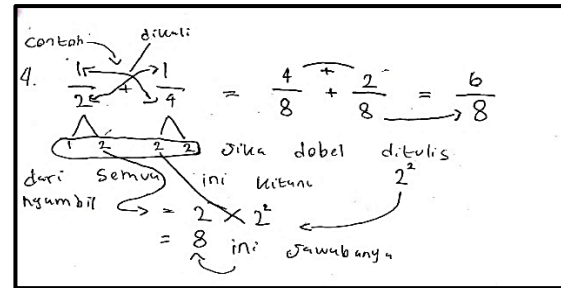 contoh dikali
4. 1/2 + 1/4 = 4/8 + 2/8 = 6/8
1 2 2 2 Jika dobel ditulis 2²
dari semua ini kitanu
ngambil = 2 × 2²
= 8 ini Jawabanya